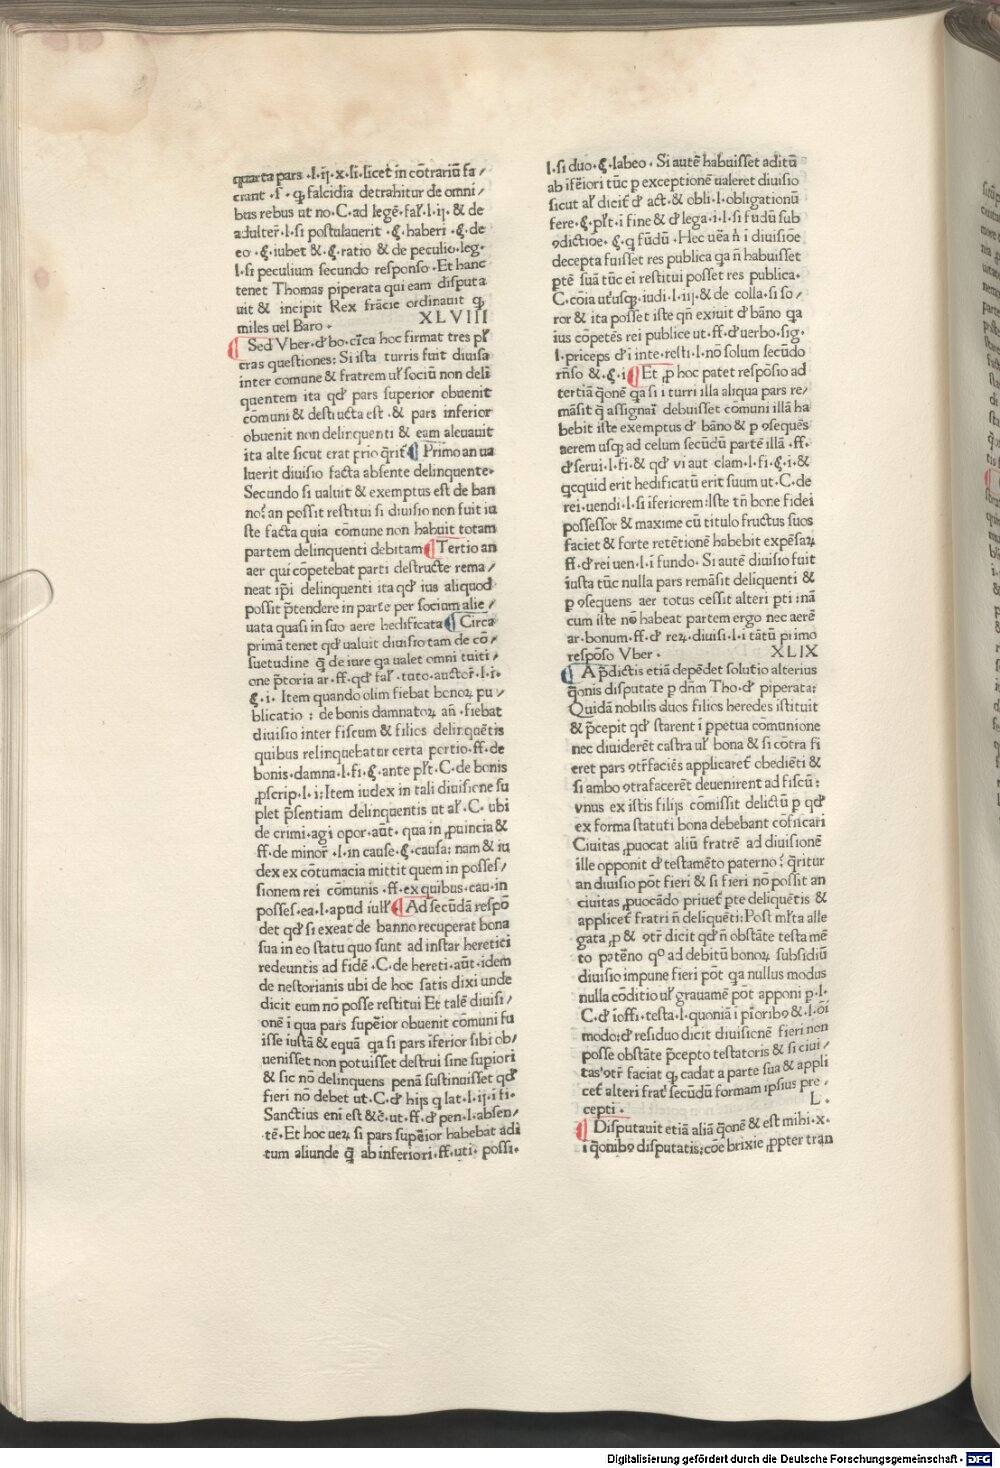 quarta pars ·l·ij·x·si·licet in cõtrariũ fa/
ciant ·s· ꝙ falcidia detrahitur de omni/
bus rebus ut no·C·ad legẽ·fal̃·l·ij· & de
adulter̃·l·si postulauerit ·§·haberi ·§·de
eo ·§·iubet &·§·ratio & de peculio·leg·
l·si peculium secundo responso·Et hanc
tenet Thomas piperata qui eam disputa
uit & incipit Rex frãcie ordinauit ꝙ
miles uel Baro· XLVIII
Sed Vber·đ bo·cĩca hoc firmat tres pl̃
cras questiones: Si ista turris fuit diuisa
inter comune & fratrem ul̃ sociũ non deli
quentem ita qđ pars superior obuenit
cõmuni & destructa est ·& pars inferior
obuenit non delinquenti & eam aleuauit
ita alte sicut erat prio q̃rit̃ Primo an ua
luerit diuisio facta absente delinquente·
Secundo si ualuit & exemptus est de ban
no: an possit restitui si diuisio non fuit iu
ste facta quia cõmune non habuit totam
partem delinquenti debitam Tertio an
aer qui cõpetebat parti destructe rema/
neat ip̃i delinquenti ita qđ ius aliquod
possit p̃tendere in parte per socium alie/
uata quasi in suo aere hedificata Circa
primã tenet qđ ualuit diuisio tam de cõ/
suetudine q̃ de iure qa ualet omni tuiti/
one p̃toria ar·ff·qđ fal̃·tuto·auctor̃·l·i·
§·i· Item quando olim fiebat bonoꝝ pu/
blicatio : de bonis damnatoꝝ añ·fiebat
diuisio inter fiscum & filios delinquẽtis
quibus relinquebatur certa portio·ff·de
bonis·damna·l·fi·§·ante pl̃t·C·de bonis
ꝓscrip·l·i:Item iudex in tali diuisione su
plet p̃sentiam delinquentis ut al̃·C· ubi
de crimi·agi opor·aũt· qua in ꝓuincia &
ff·de minor̃ ·l·in cause·§·causa: nam & iu
dex ex cõtumacia mittit quem in posses/
sionem rei cõmunis ·ff·ex quibus·cau·in
posses·ea·l·apud iul̃ Ad secũdã respõ
det qđ si exeat de banno recuperat bona
sua in eo statu quo sunt ad instar heretici
redeuntis ad fidẽ ·C·de hereti·aũt·idem
de nestorianis ubi de hoc satis dixi unde
dicit eum nõ posse restitui Et talẽ diuisi/
onẽ i qua pars supẽior obuenit cõmuni fu
isse iustã & equã qa si pars ĩferior sibi ob/
uenisset non potuisset destrui sine supiori
& sic nõ delinquens penã sustinuisset qđ
fieri nõ debet ut·C·đ hijs q lat·l·ij·i fi·
Sanctius eni est &c̃·ut·ff·đ pen·l·absen/
tẽ·Et hoc ueꝝ si pars supẽior habebat adi
tum aliunde q̃ ab inferiori·ff·uti· possi·
l·si duo·§·labeo· Si autẽ habuisset aditũ
ab ĩfeiori tũc p exceptionẽ ualeret diuisio
sicut al̃ dicit̃ đ act·& obli·l·obligationũ
fere·§·pl̃t·i fine & đ lega·i·l·si fũdũ sub
ꝯdictioe·§·q fũdũ·Hec uẽa ñ i diuisiõe
decepta fuisset res publica qa ñ habuisset
ptẽ suã tũc ei restitui posset res publica·
C·cõia ut̃usꝙ·iudi·l·iij·& de colla·si so/
ror & ita posset iste qñ exiuit đ bãno qa
ius cõpetẽs rei publice ut·ff·đ uerbo·sig·
l·priceps đ i inte·resti·l·nõ solum secũdo
rñso &·§·i Et ꝓ hoc patet respõsio ad
tertiã q̃onẽ qa si i turri illa aliqua pars re/
mãsit q̃ assignai debuisset cõmuni illã ha
bebit iste exemptus đ bãno & p ꝯsequẽs
aerem usꝙ ad celum secũdũ partẽ illã ·ff·
đ serui·l·fi·& qđ vi aut clam·l·fi·§·i·&
qcquid erit hedificatũ erit suum ut·C·de
rei·uendi·l·si iferiorem:Iste tñ bone fidei
possessor & maxime cũ titulo fructus suos
faciet & forte retẽtionẽ habebit expẽsaꝝ
ff·đ rei uen·l·i fundo· Si autẽ diuisio fuit
iusta tũc nulla pars remãsit deliquenti &
p ꝯsequens aer totus cessit alteri pti:nã
cum iste nõ habeat partem ergo nec aerẽ
ar·bonum·ff·đ reꝝ·diuisi·l·i tãtũ primo
respõso Vber· XLIX
A p̃dictis etiã depẽdet solutio alterius
q̃onis disputate p dñm Tho·đ piperata:
Quidã nobilis duos filios heredes istituit
& p̃cepit qđ starent i ꝑpetua cõmunione
nec diuiderẽt castra ul̃ bona & si cõtra fi
eret pars ꝯtr̃faciẽs applicaret̃ obediẽti &
si ambo ꝯtrafacerẽt deuenirent ad fiscũ:
vnus ex istis filijs cõmissit delictũ p qđ
ex forma statuti bona debebant cõfiscari
Ciuitas ꝓuocat aliũ fratrẽ ad diuisionẽ
ille opponit đ testamẽto paterno: q̃ritur
an diuisio põt fieri & si fieri nõ possit an
ciuitas ꝓuocãdo priuet̃ pte deliquẽtis &
applicet̃ fratri ñ deliquẽti:Post ml̃ta alle
gata ꝓ & ꝯtr̃ dicit qđ ñ obstãte testamẽ
to patẽno qº ad debitũ bonoꝝ subsidiũ
diuisio impune fieri põt qa nullus modus
nulla cõditio ul̃ grauamẽ põt apponi p·l·
C·đ ioffi·testa·l·quoniã i p̃iorib9 &·l·oĩ
modo:đ residuo dicit diuisionẽ fieri non
posse obstãte p̃cepto testatoris & si ciui/
tas ꝯtr̃ faciat ꝙ cadat a parte sua & appli
cet̃ alteri frat̃ secũdũ formam ipsius pre/
cepti· L·
Disputauit etiã aliã q̃onẽ & est mihi·x·
i q̃onib9 disputatis:cõe brixie ꝓpter tran
Digitalisierung gefördert durch die Deutsche Forschungsgemeinschaft - DFG